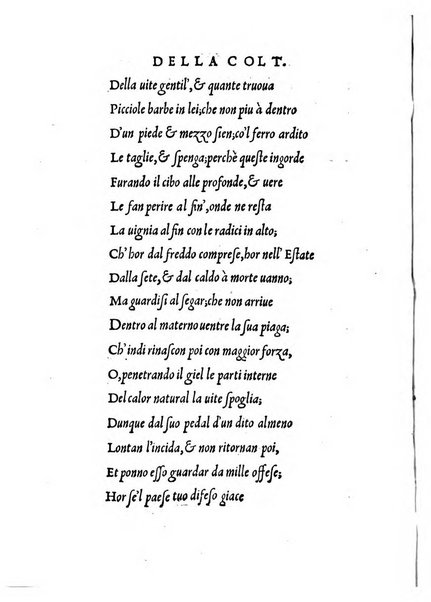 DELLA COLT.
Della uite gentil', & quante truoua
Picciole barbe in lei; che non piu à dentro
D'un piede & mezzo sien; co'l ferro ardito
Le taglie, & spenga; perchè queste ingorde
Furando il cibo alle profonde, & uere
Le fan perire al fin', onde ne resta
La uignia al fin con le radici in alto;
Ch'hor dal freddo comprese, hor nell'Estate
Dalla sete, & dal caldo à morte uanno;
Ma guardisi al segar; che non arriue
Dentro al materno uentre la sua piaga;
Ch'indi rinascon poi con maggior forza,
O, penetrando il giel le parti interne
Del calor natural la uite spoglia;
Dunque dal suo pedal d'un dito almeno
Lontan l'incida, & non ritornan poi,
Et ponno esso guardar da mille offese;
Hor se'l paese tuo difeso giace